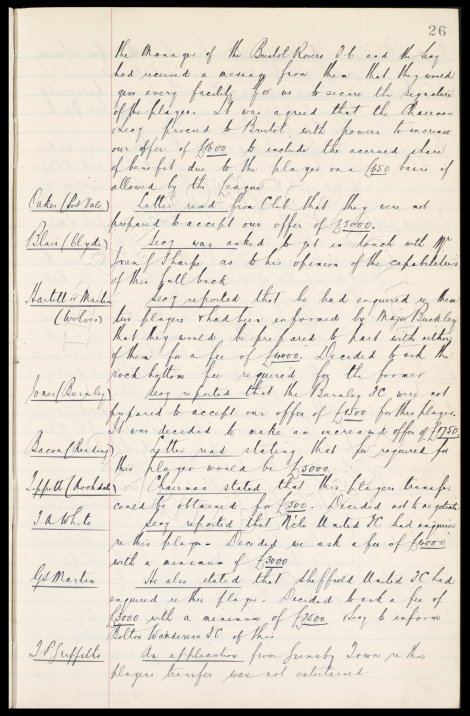 26
the Manager of the Bristol Rovers F.C and the Secy
had received a message from them that they would
give every facility for us to secure the signature
of the player. It was agreed that the Chairman
& Secy proceed to Bristol, with powers to increase
our offer of £1600 to include the accrued share
of benefit due to the player on a £650 basis if
allowed by the League
Oakes (Port Vale) Letter read from Club that they were not
prepared to accept our offer of £3000.
Blair (Clyde) Secy was asked to get in touch with Mr
Ivan J Sharpe as to his opinion of the capabilities
of this full back
Hartill & Martin Secy reported that he had enquired re these
(Wolves) two players & had been informed by Major Buckley
that they would be prepared to part with either
of them for a fee of £4000. Decided to ask the
rock bottom fee required for the former
Jones (Burnley) Secy reported that the Burnley FC were not
prepared to accept our offer of £1500 for this player.
It was decided to make an increased offer of £1750
Bacon (Reading) Letter read stating that fee required for
this player would be £3000
Tippett (Rochdale) Chairman stated that this players transfer
could be obtained for £500. Decided not to negotiate
T.A White Secy reported that N'cle United FC had enquired
re this player. Decided we ask a fee of £4000
with a minimum of £3000
G.S. Martin He also stated that Sheffield United FC had
enquired re this player. Decided to ask a fee of
£3000 with a minimum of £2500 Secy to inform
Bolton Wanderers FC of this
T.P. Griffiths An application from Grimsby Town re this
players transfer was not entertained.